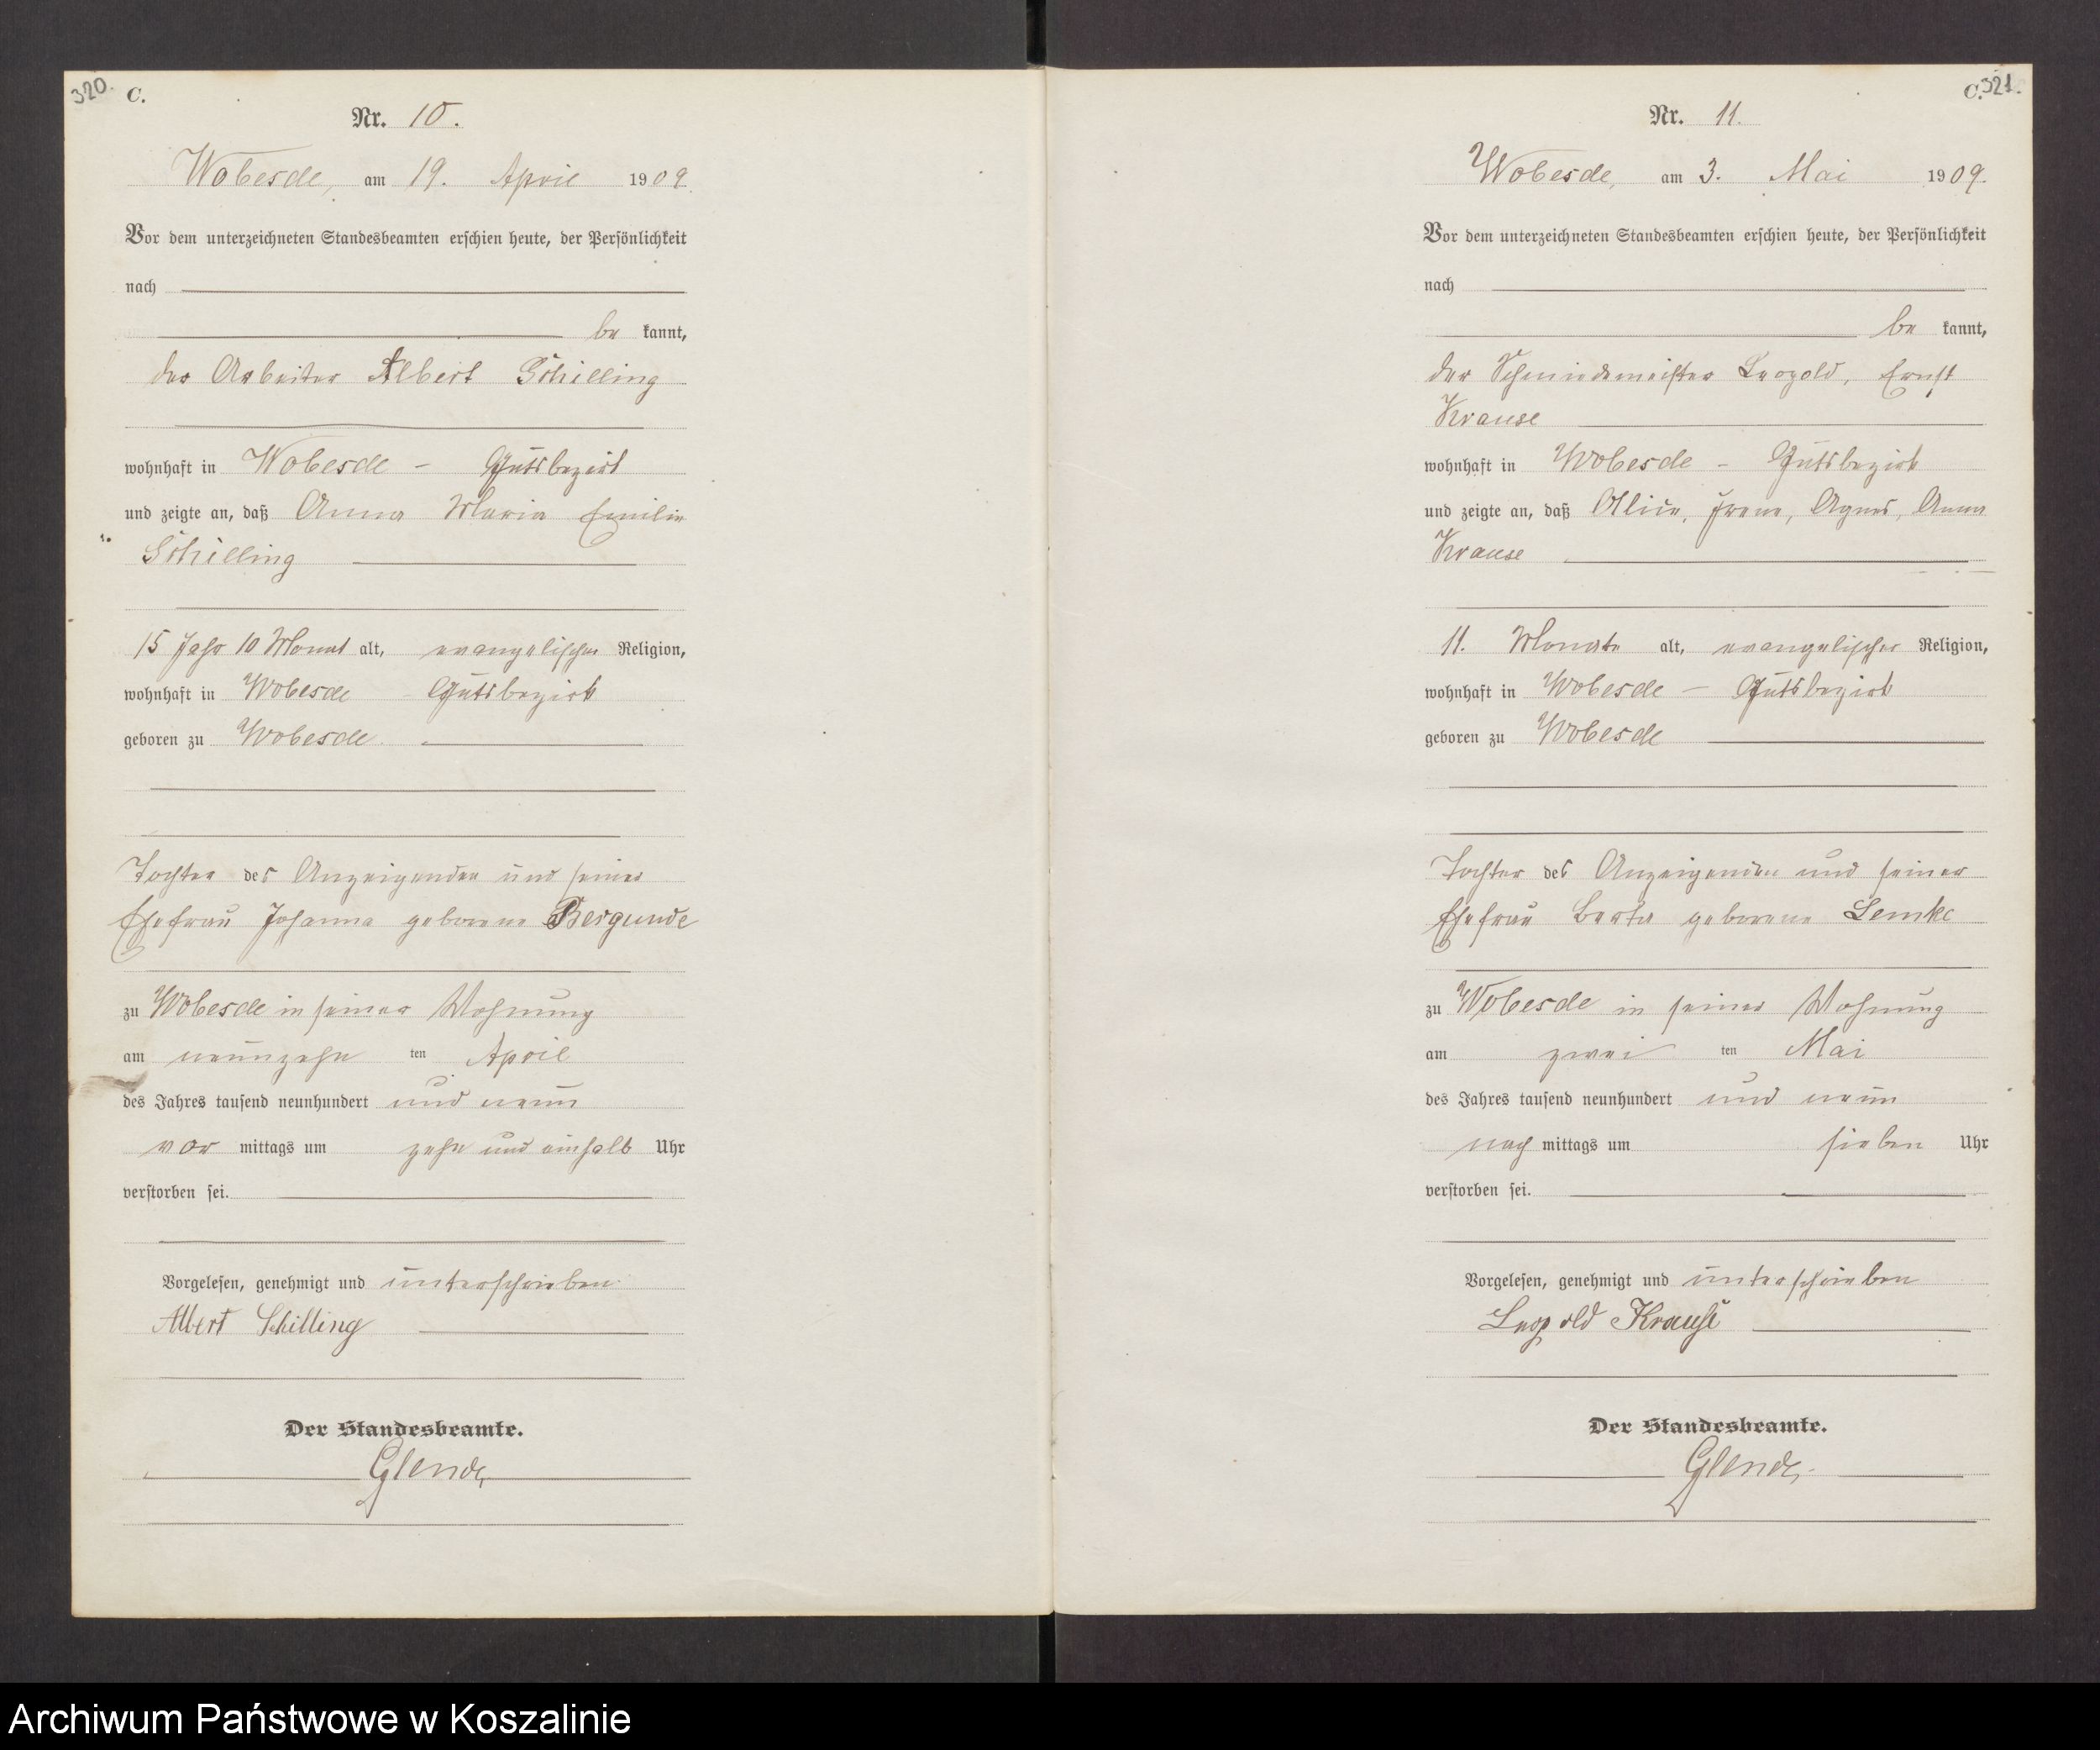 320.
C.
Nr. 10.
Wobesde, am 19. April 1909.
Vor dem unterzeichneten Standesbeamten erschien heute, der Persönlichkeit
nach
be kannt,
der Arbeiter Albert Schilling
wohnhaft in Wobesde - Gutsbezirk
und zeigte an, daß Anna Maria Emilie
Schilling
15 Jahr 10 Monat alt, evangelischer Religion,
wohnhaft in Wobesde - Gutsbezirk
geboren zu Wobesde
Tochter des Anzeigenden und seiner
Ehefrau Johanna geborene Bergunde
zu Wobesde in seiner Wohnung
am neunzehn ten April
des Jahres tausend neunhundert und neun
vor mittags um zehn und einhalb Uhr
verstorben sei.
Vorgelesen, genehmigt und unterschrieben
Albert Schilling
Der Standesbeamte.
C. 321.
Nr. 11.
Wobesde, am 3. Mai 1909.
Vor dem unterzeichneten Standesbeamten erschien heute, der Persönlichkeit
nach
be kannt,
der Schmiedemeister Leopold, Ernst
Krause
wohnhaft in Wobesde - Gutsbezirk
und zeigte an, daß Irene, Agnes, Anna
Krause
11. Monate alt, evangelischer Religion,
wohnhaft in Wobesde - Gutsbezirk
geboren zu Wobesde
Tochter des Anzeigenden und seiner
Ehefrau Berta geborene Lemke
zu Wobesde in seiner Wohnung
am zwei ten Mai
des Jahres tausend neunhundert und neun
nach mittags um sieben Uhr
verstorben sei.
Vorgelesen, genehmigt und unterschrieben
Leopold Krause
Der Standesbeamte.
Archiwum Państwowe w Koszalinie